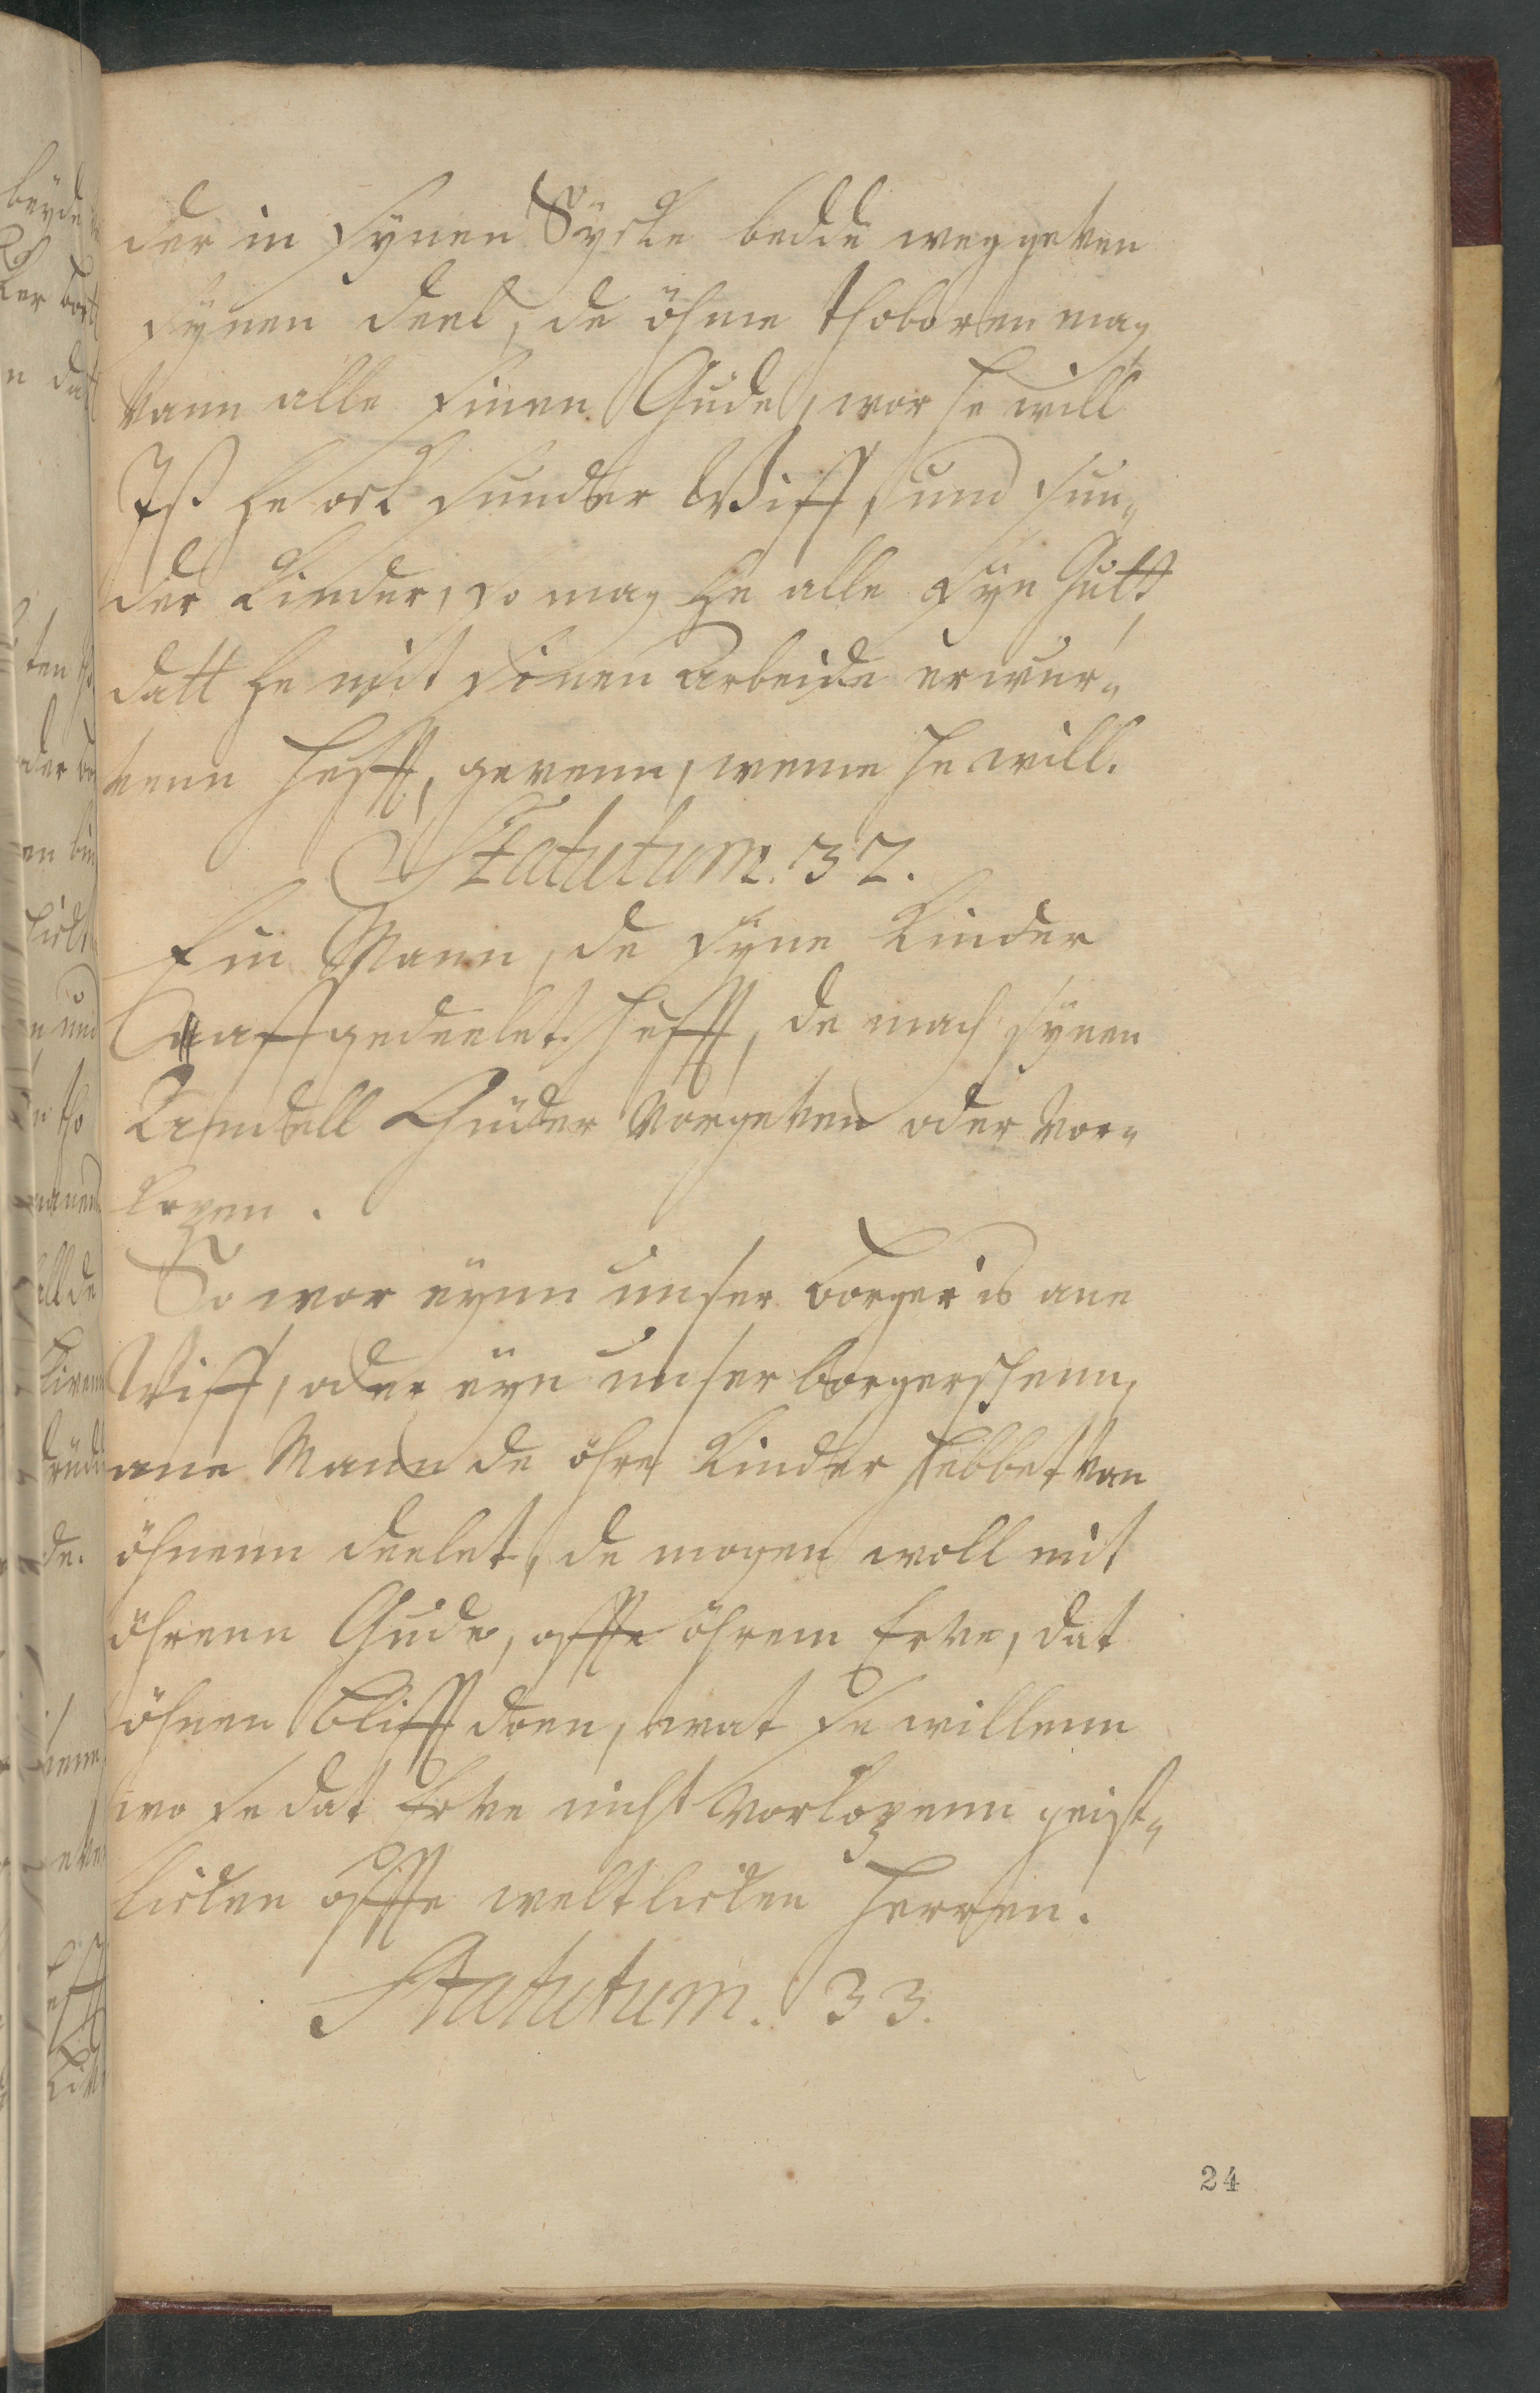 der in synen Sycke bedde weggeven
synen deel, de öhme thoboren mag
vann alle sinen Gude, wor he will
Iß he ock sunder Wiff, und sun„
der Kinder, so mag he alle syn Gutt,
datt he mit sinen Arbeide erwur„
venn hefft, gevenn, weme he will.
Statutum. 32.
Ein Mann, de syne Kinder
affgedeelet hefft, de mach synen
Andell Güder vorgeven oder vor„
kopen.
So wor eynn unser borger is ane
Wiff, oder eyn unser borgerschenn,
ane Mann de öhre Kinder hebbet van
öhnenn deelet, de mogen woll mit
öhrenn Gude, offte öhrem Erve, dat
öhnen blifft doen, wat se willenn
wo se dat Erve nicht vorkopenn geist„
licken offte weltlicken Herren.
Statutum. 33.
24